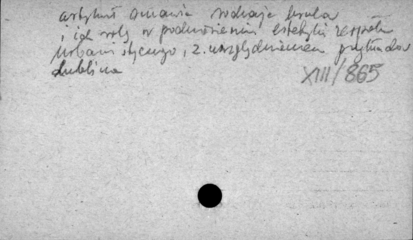 artykuł omawia rodzaje
i ich rolę w podnoszeniu estetyki zespołu
urbanistycznego, z uwzględnieniem przykładów
Lublina
XIII/865